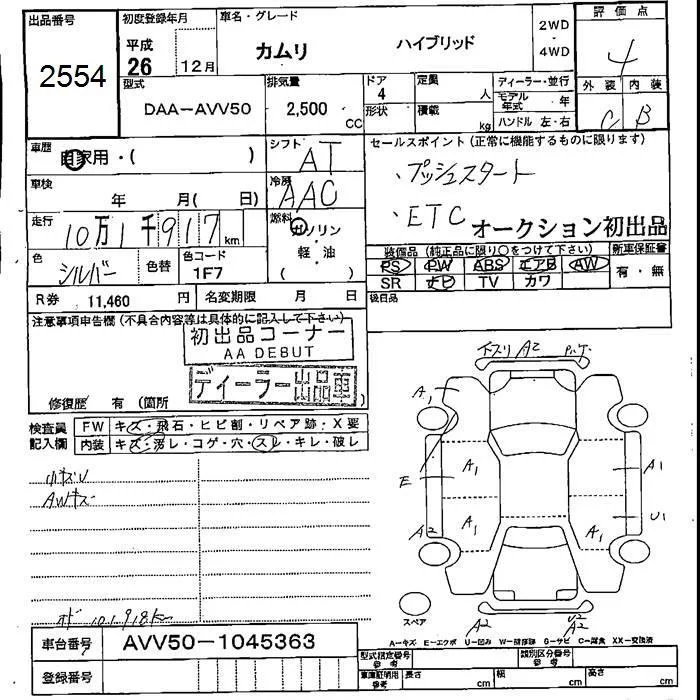 出品番号
2554
初度登録年月
平成
26 12月
車名・グレード
カムリ ハイブリッド
2WD
・
4WD
評価点
4
外装 内装
C B
型式
DAA-AVV50
排気量
2,500 CC
ドア
4
形状
定員
人
積載
kg
ディーラー・並行
モデル年式 年
ハンドル 左・右
車歴
自家用・( )
シフト
AT
車検
年 月( 日)
冷房
AAC
走行
10万1千917km
燃料
ガソリン
・
軽・油
( )
色
シルバー
色替
色コード
1F7
R券 11,460 円
名変期限 月 日
セールスポイント (正常に機能するものに限ります)
・プッシュスタート
・ETC オークション初出品
装備品 (純正品に限り○をつけて下さい)
新車保証書
PS PW ABS エアB AW
SR ナビ TV カワ
有・無
後日品
注意事項申告欄 (不具合内容等は具体的に記入して下さい)
初出品コーナー
AA DEBUT
ディーラー出品車
修復歴 有 (箇所
検査員記入欄
FW キズ・飛石・ヒビ割・リペア跡・X要
内装 キズ・汚レ・コゲ・穴・スレ・キレ・破レ
小キズU
AWキズ
車台番号 AVV50-1045363
登録番号
A2
A1
E
A1
A1
A1
U1
A2
A1
A1
スペア
A2
U2
A2
A-キズ E-エクボ U-凹み W-補修跡 G-サビ C-腐食 XX-交換済
型式指定番号
参考
類別区分番号
参考
車庫証明用
参考
長さ cm
幅 cm
高さ cm